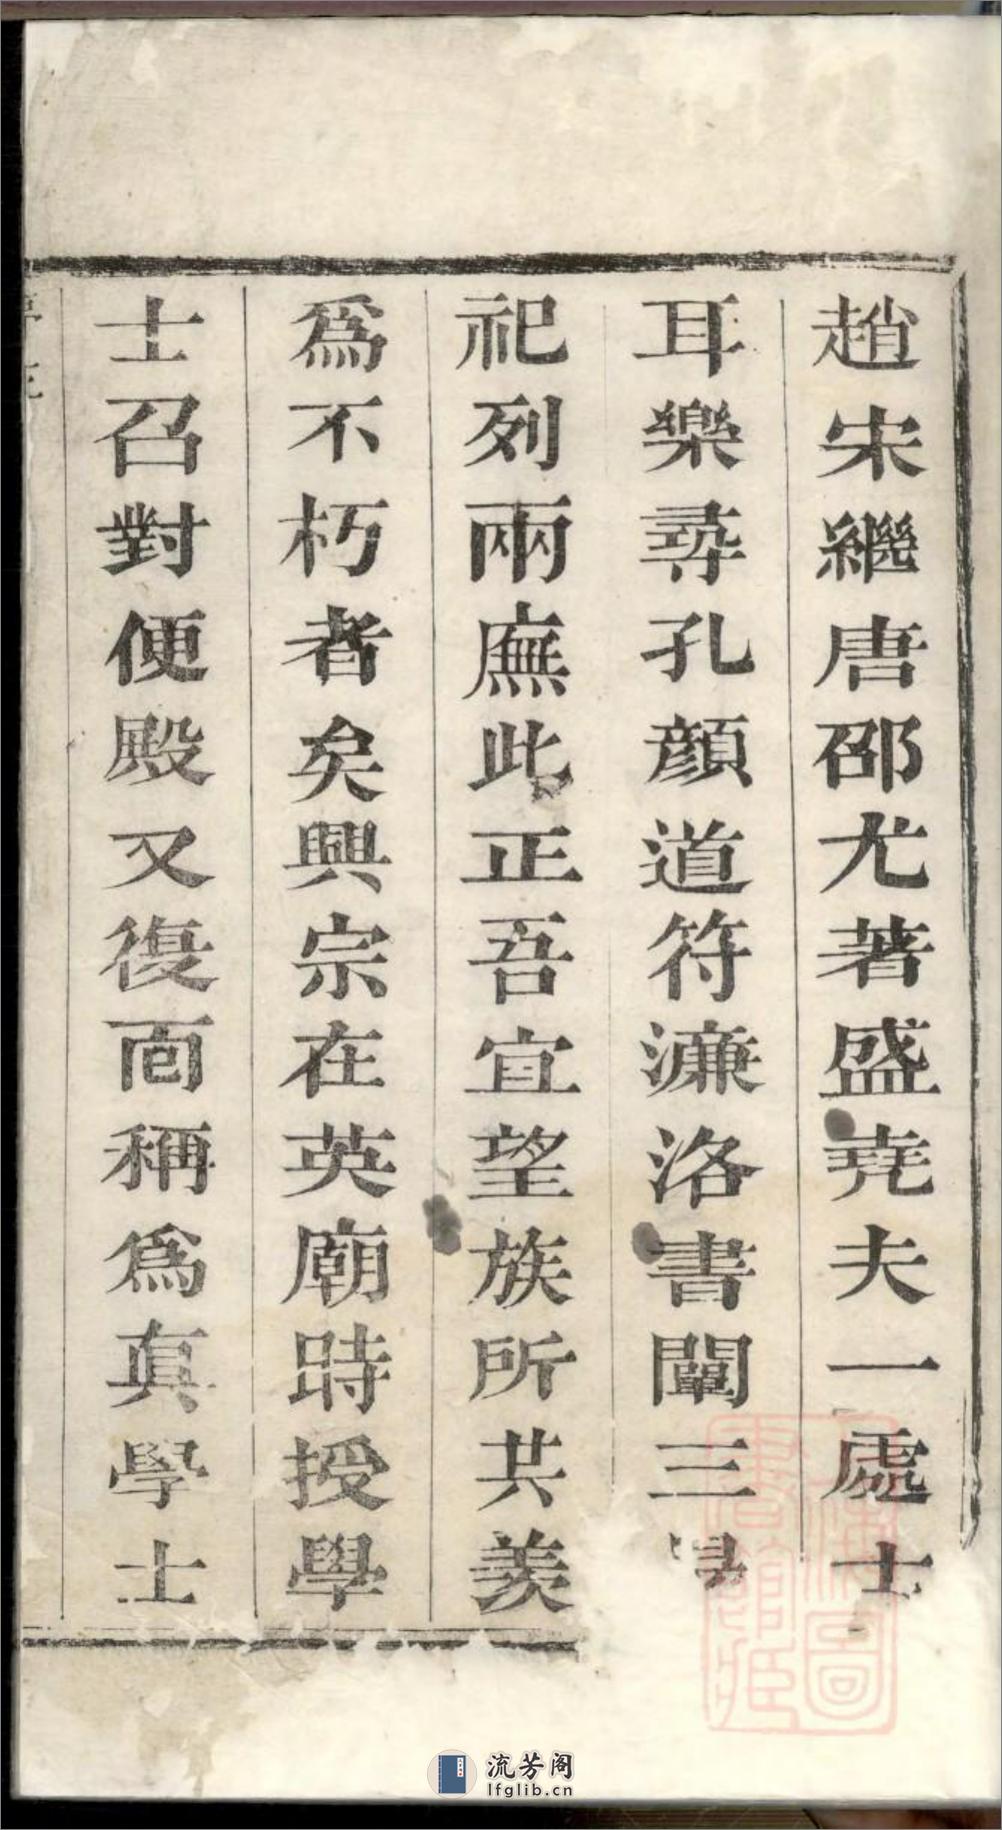 趙宋繼唐邵尤著盛堯夫一處士
耳樂尋孔顔道符濓洛書闡三
祀列兩廡此正吾宜望族所共羨
爲不朽者矣興宗在英廟時授學
士召對便殿又復面稱爲真學士
流芳阁
lfglib.cn